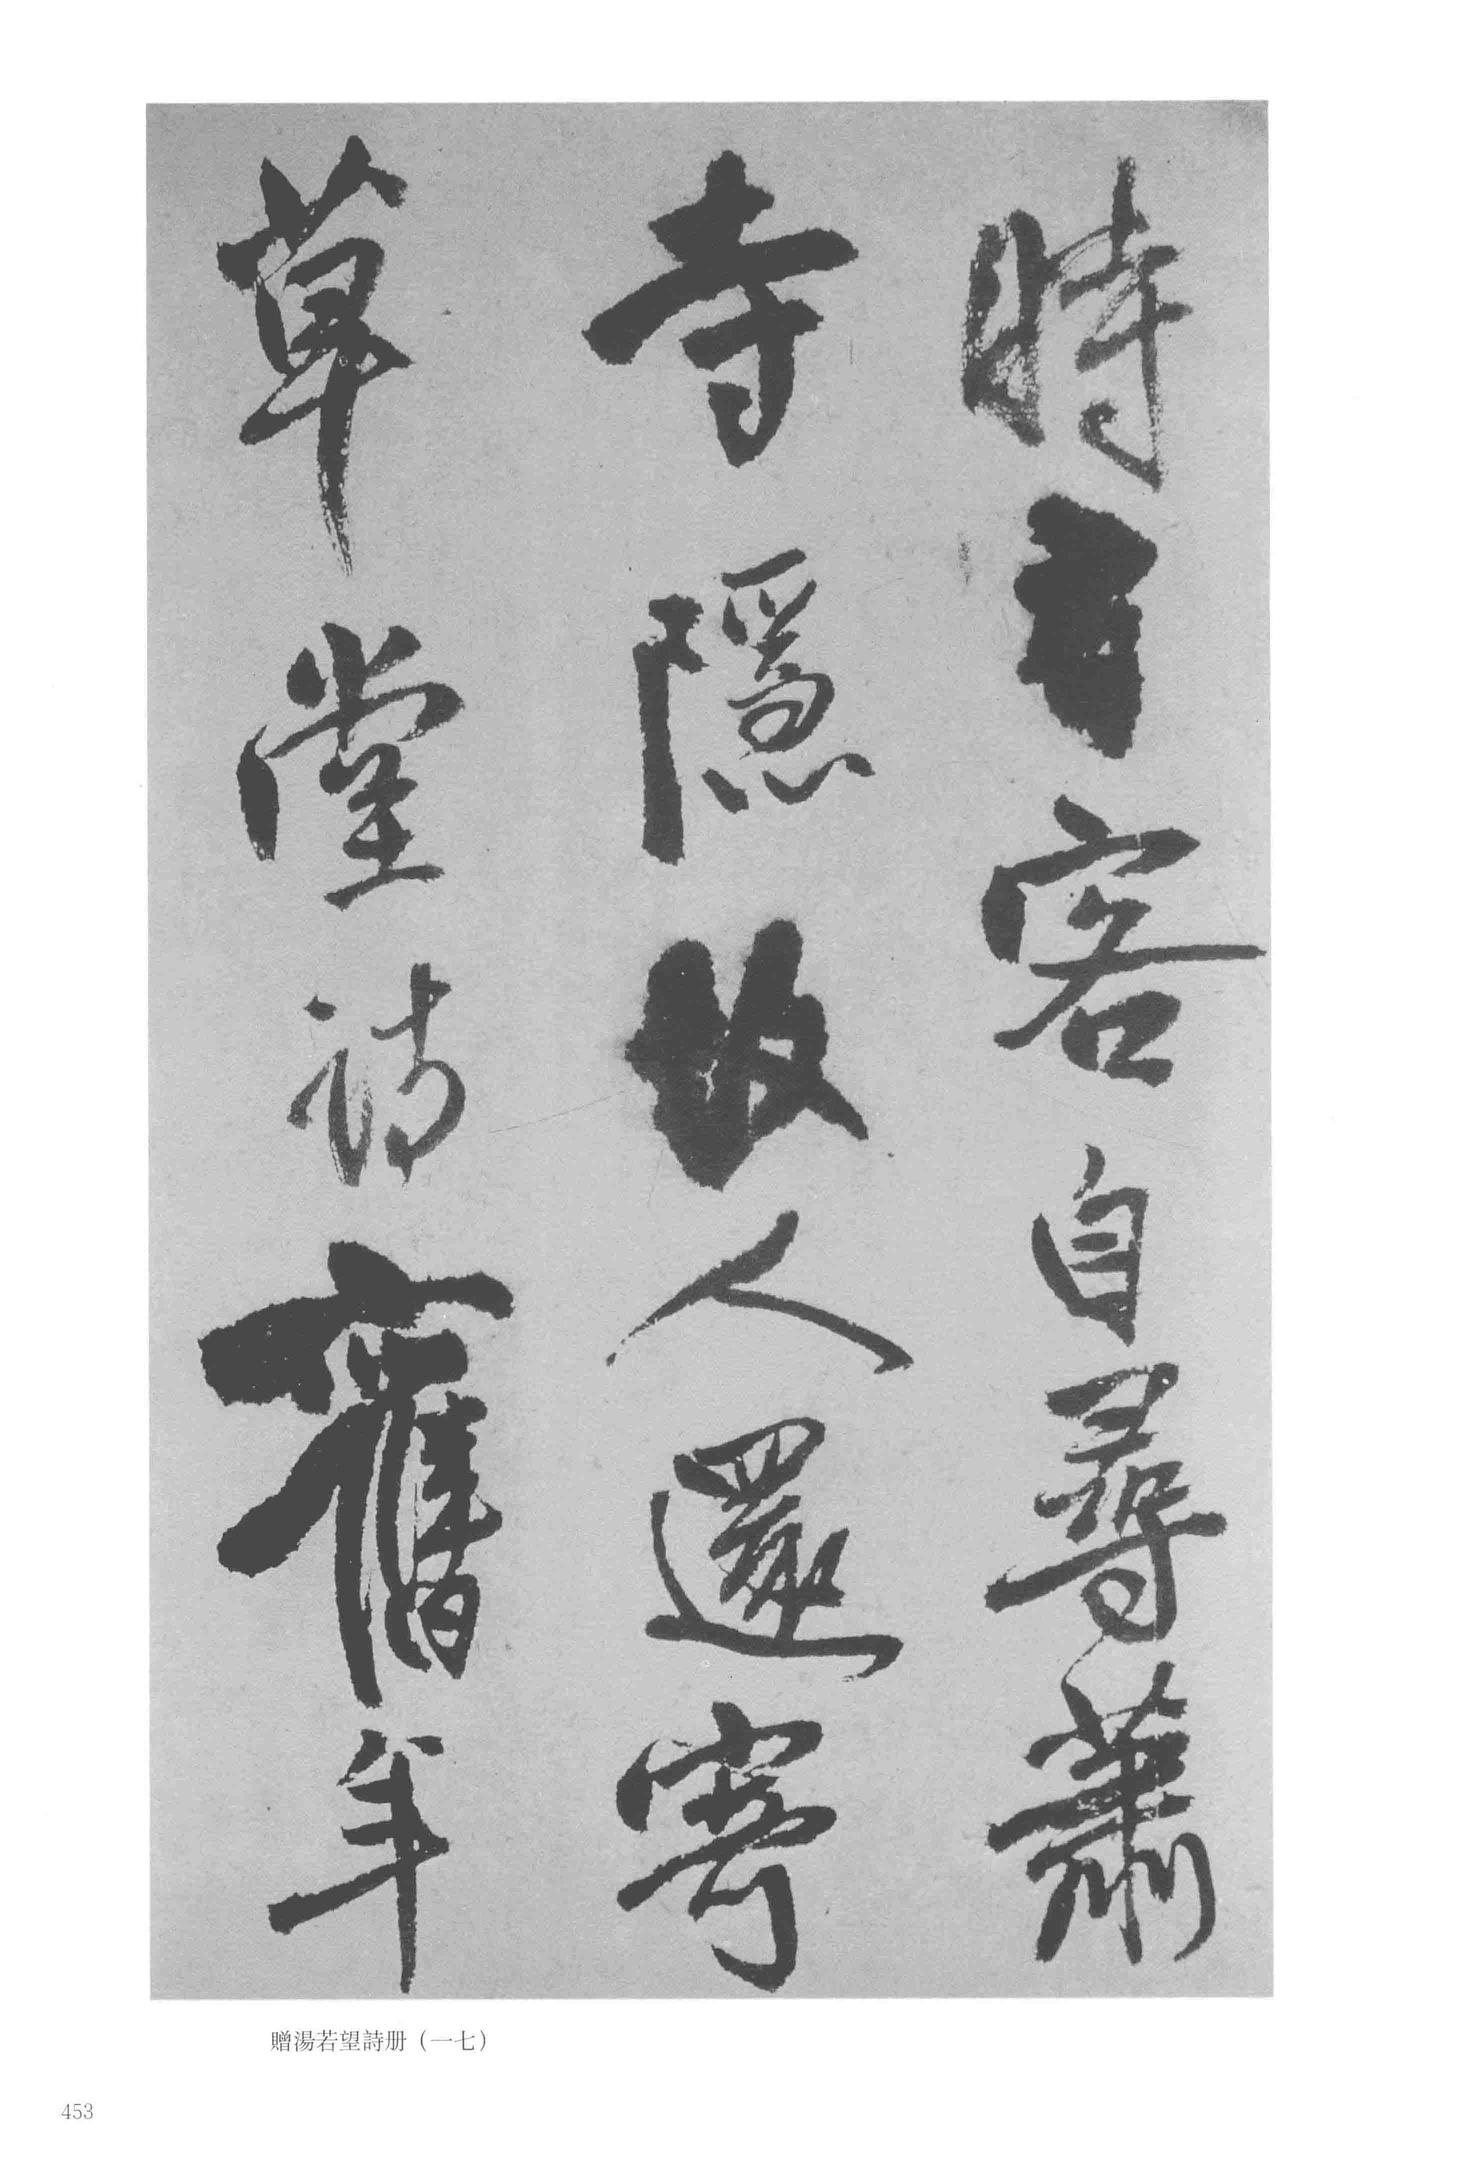 時有客自尋蕭
寺隱故人還寄
草堂詩舊年
贈湯若望詩册（一七）
453